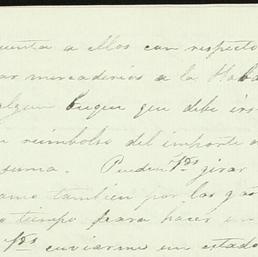 uenta a ellos con respecto
ar mercaderias a la Haba
algun buque que debe irs
n reimbolso del importe d
suma. Pueden Vds girar
omo tambien por los ga
o tiempo para hacer un
Vds enviarme un estado